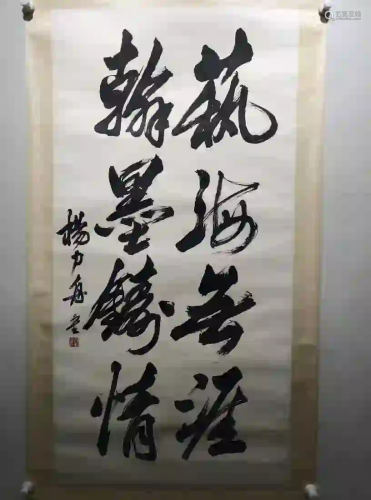 藝海無涯
翰墨鑄情
楊力舟書